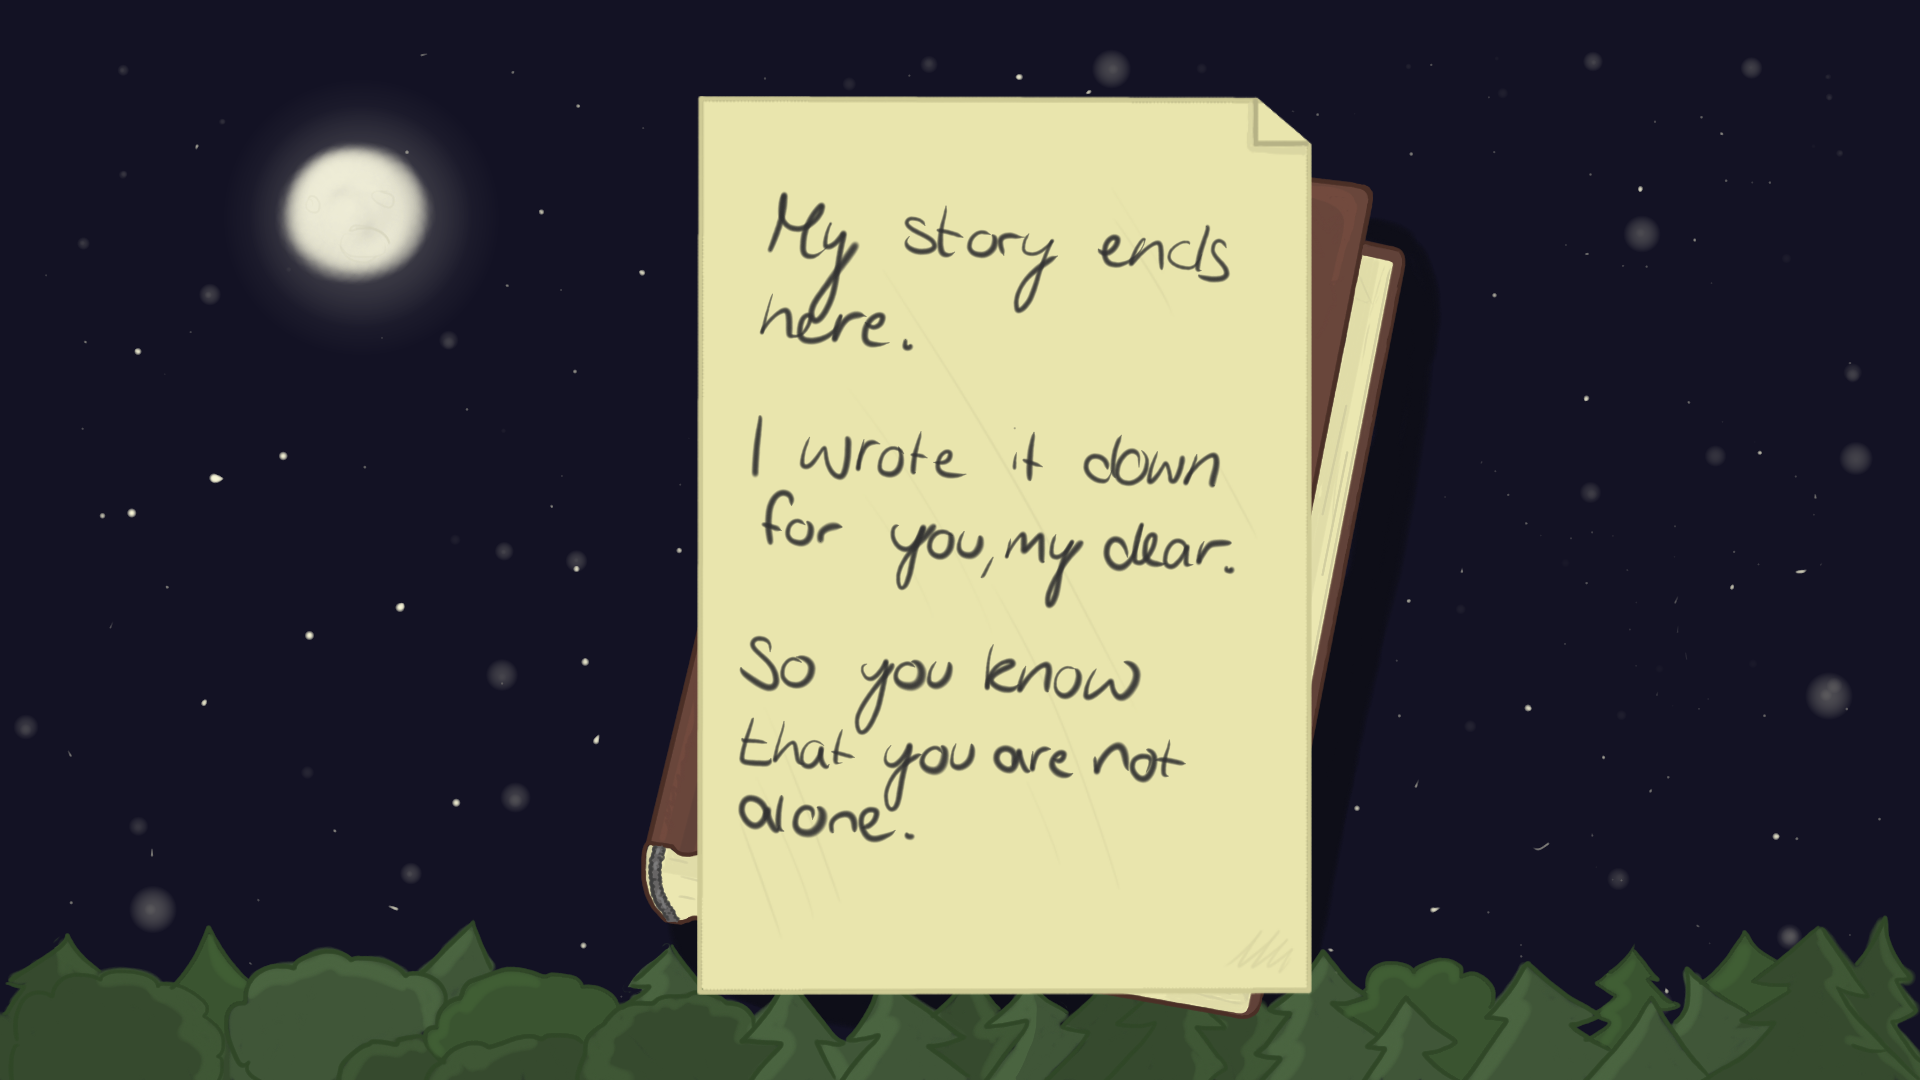 My story ends
here.
I wrote it down
for you, my dear.
So you know
that you are not
alone.